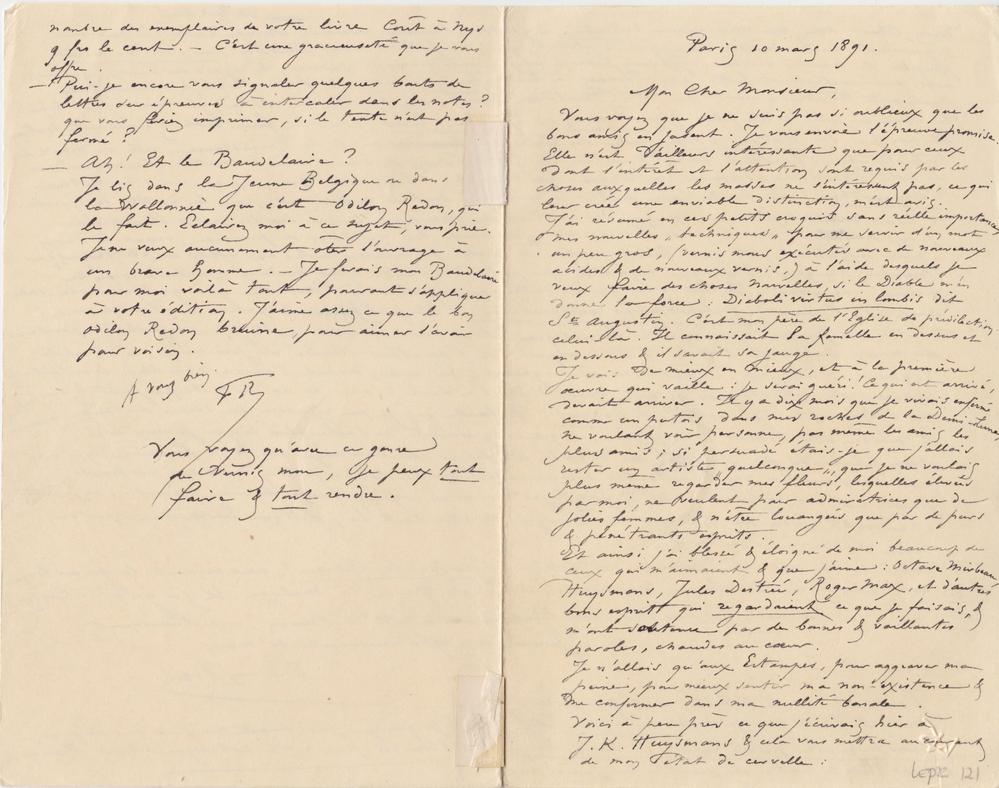 nombre des exemplaires de votre livre Coût à Nys
9 frs le cent. — C'est une gracieuseté que je vous
offre.
— Puis-je encore vous signaler quelques bouts de
lettres sur épreuves à intercaler dans les notes?
que vous feriez imprimer, si le texte n'est pas
fermé?
— Ah! Et le Baudelaire?
Je lis dans la Jeune Belgique ou dans
la Wallonnie, que c'est Odilon Redon, qui
le fait. Eclairez moi à ce sujet, vous prie.
Je ne veux aucunement ôter l'ouvrage à
un brave homme. — Je ferais mon Baudelaire
pour moi voilà tout, pouvant s'appliquer
à votre édition. J'aime assez ce que le bon
Odilon Redon burine, pour aimer l'avoir
pour voisin.
A vous bien
FR
Vous voyez qu'avec ce genre
de Vernis mou, je peux tout
faire & tout rendre.
Paris 10 mars 1891.
Mon Cher Monsieur,
Vous voyez que je ne suis pas si oublieux que les
bons amis en jasent. Je vous envoie l'épreuve promise.
Elle n'est d'ailleurs intéressante que pour ceux
dont l'intérêt et l'attention sont requis par les
choses auxquelles les masses ne s'intéressent pas, ce qui
leur crée une enviable distinction, m'est avis.
J'ai résumé en ces petits croquis sans réelle importance
mes nouvelles „techniques„ pour me servir d'un mot
un peu gros, (vernis mous exécutés avec de nouveaux
acides & de nouveaux vernis,) à l'aide desquels je
veux faire des choses nouvelles, si le Diable m'en
donne la force: Diaboli virtus in lombis dit
St Augustin. C'est mon père de l'Eglise de prédilection
celui là. Il connaissait la famelle en dessus et
en dessous & il savait sa jauge.
Je vais de mieux en mieux, et à la première
œuvre qui vaille: je serai guéri! Ce qui est arrivé,
devait arriver. Il y a dix mois que je vivais enfermé
comme un putois dans mes roches de la Demi-Lune
ne voulant voir personne, pas même les amis, les
plus amis; si persuadé étais-je que j'allais
rester un artiste „quelconque„, que je ne voulais
plus même regarder mes fleurs, lesquelles élevées
par moi, ne veulent pour admiratrices que de
jolies femmes, & n'être louangées que par de purs
& pénétrants esprits.
Et ainsi j'ai blessé & éloigné de moi beaucoup de
ceux qui m'aimaient & que j'aime: Octave Mirbeau
Huysmans, Jules Destrée, Roger Marx, et d'autres
bons esprits qui regardaient ce que je faisais, &
m'ont soutenu par de bonnes & vaillantes
paroles, chaudes au cœur.
Je n'allais qu'aux Estampes, pour aggraver ma
peine, pour mieux sentir ma non-existence &
me confirmer dans ma nullité banale.
Voici à peu près ce que j'écrivais hier à
J. K. Huysmans & cela vous mettra au courant
de mon état de cervelle:
Lepr 121